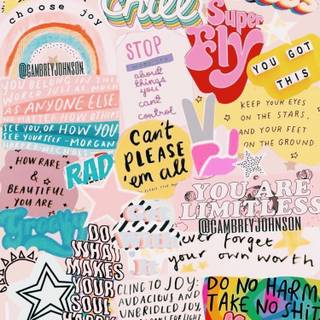 choose joy
Chill
Super
Fly
YOU GOT
THIS
STOP
about
things
you
can't
control
@CAMBREYJOHNSON
YOU BELONG IN THIS
WORLD JUST AS MUCH
AS ANYONE ELSE.
NO MATTER HOW OTHERS
SEE YOU, OR HOW YOU
SEE YOURSELF -MORGAN
HARPER NICHOLS
Can't
PLEASE
'em all
KEEP YOUR EYES
ON THE STARS,
AND YOUR FEET
ON THE GROUND
HOW RARE
&
BEAUTIFUL
YOU ARE
RAD
YOU ARE
LIMITLESS
@CAMBREYJOHNSON
never forget
your own worth
groovy
DO
WHAT
MAKES
YOUR
SOUL
HAPPY
CLING TO JOY;
AUDACIOUS AND
UNBRIDLED JOY,
DO NO HARM
TAKE NO SHIT